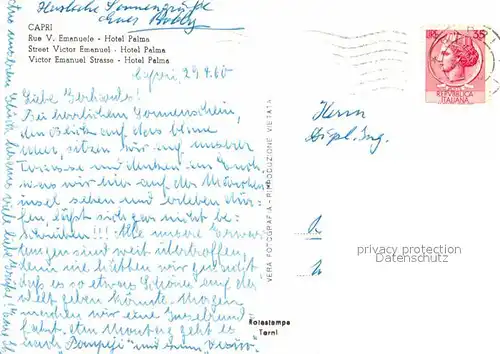 Herzliche Sonnengrüße
Eures Bobby
CAPRI
Rue V. Emanuele - Hotel Palma
Street Victor Emanuel - Hotel Palma
Victor Emanuel Strasse - Hotel Palma
Capri, 29.4.60
Liebe Gerhards!
Bei herrlichem Sonnenschein,
den Blick auf das blaue
Meer, sitzen wir auf unserer
Terrasse und denken an Euch,
was wir hier auf der Märchen
insel sehen und erleben dür-
fen, läßt sich gar nicht be-
schreiben!!! Alle unsere Erwar-
tungen sind weit übertroffen,
denn wir hätten nie gedacht
daß es so etwas Schönes auf der
Welt geben könnte. Morgen
machen wir eine Inselrund
fahrt. Am Montag geht es
nach Pompeji und zum Vesuv
VERA FOTOGRAFIA - RIPRODUZIONE VIETATA
Rotostampa
Terni
Herrn
Dipl. Ing.
REPUBBLICA
ITALIANA
35
privacy protection
Datenschutz